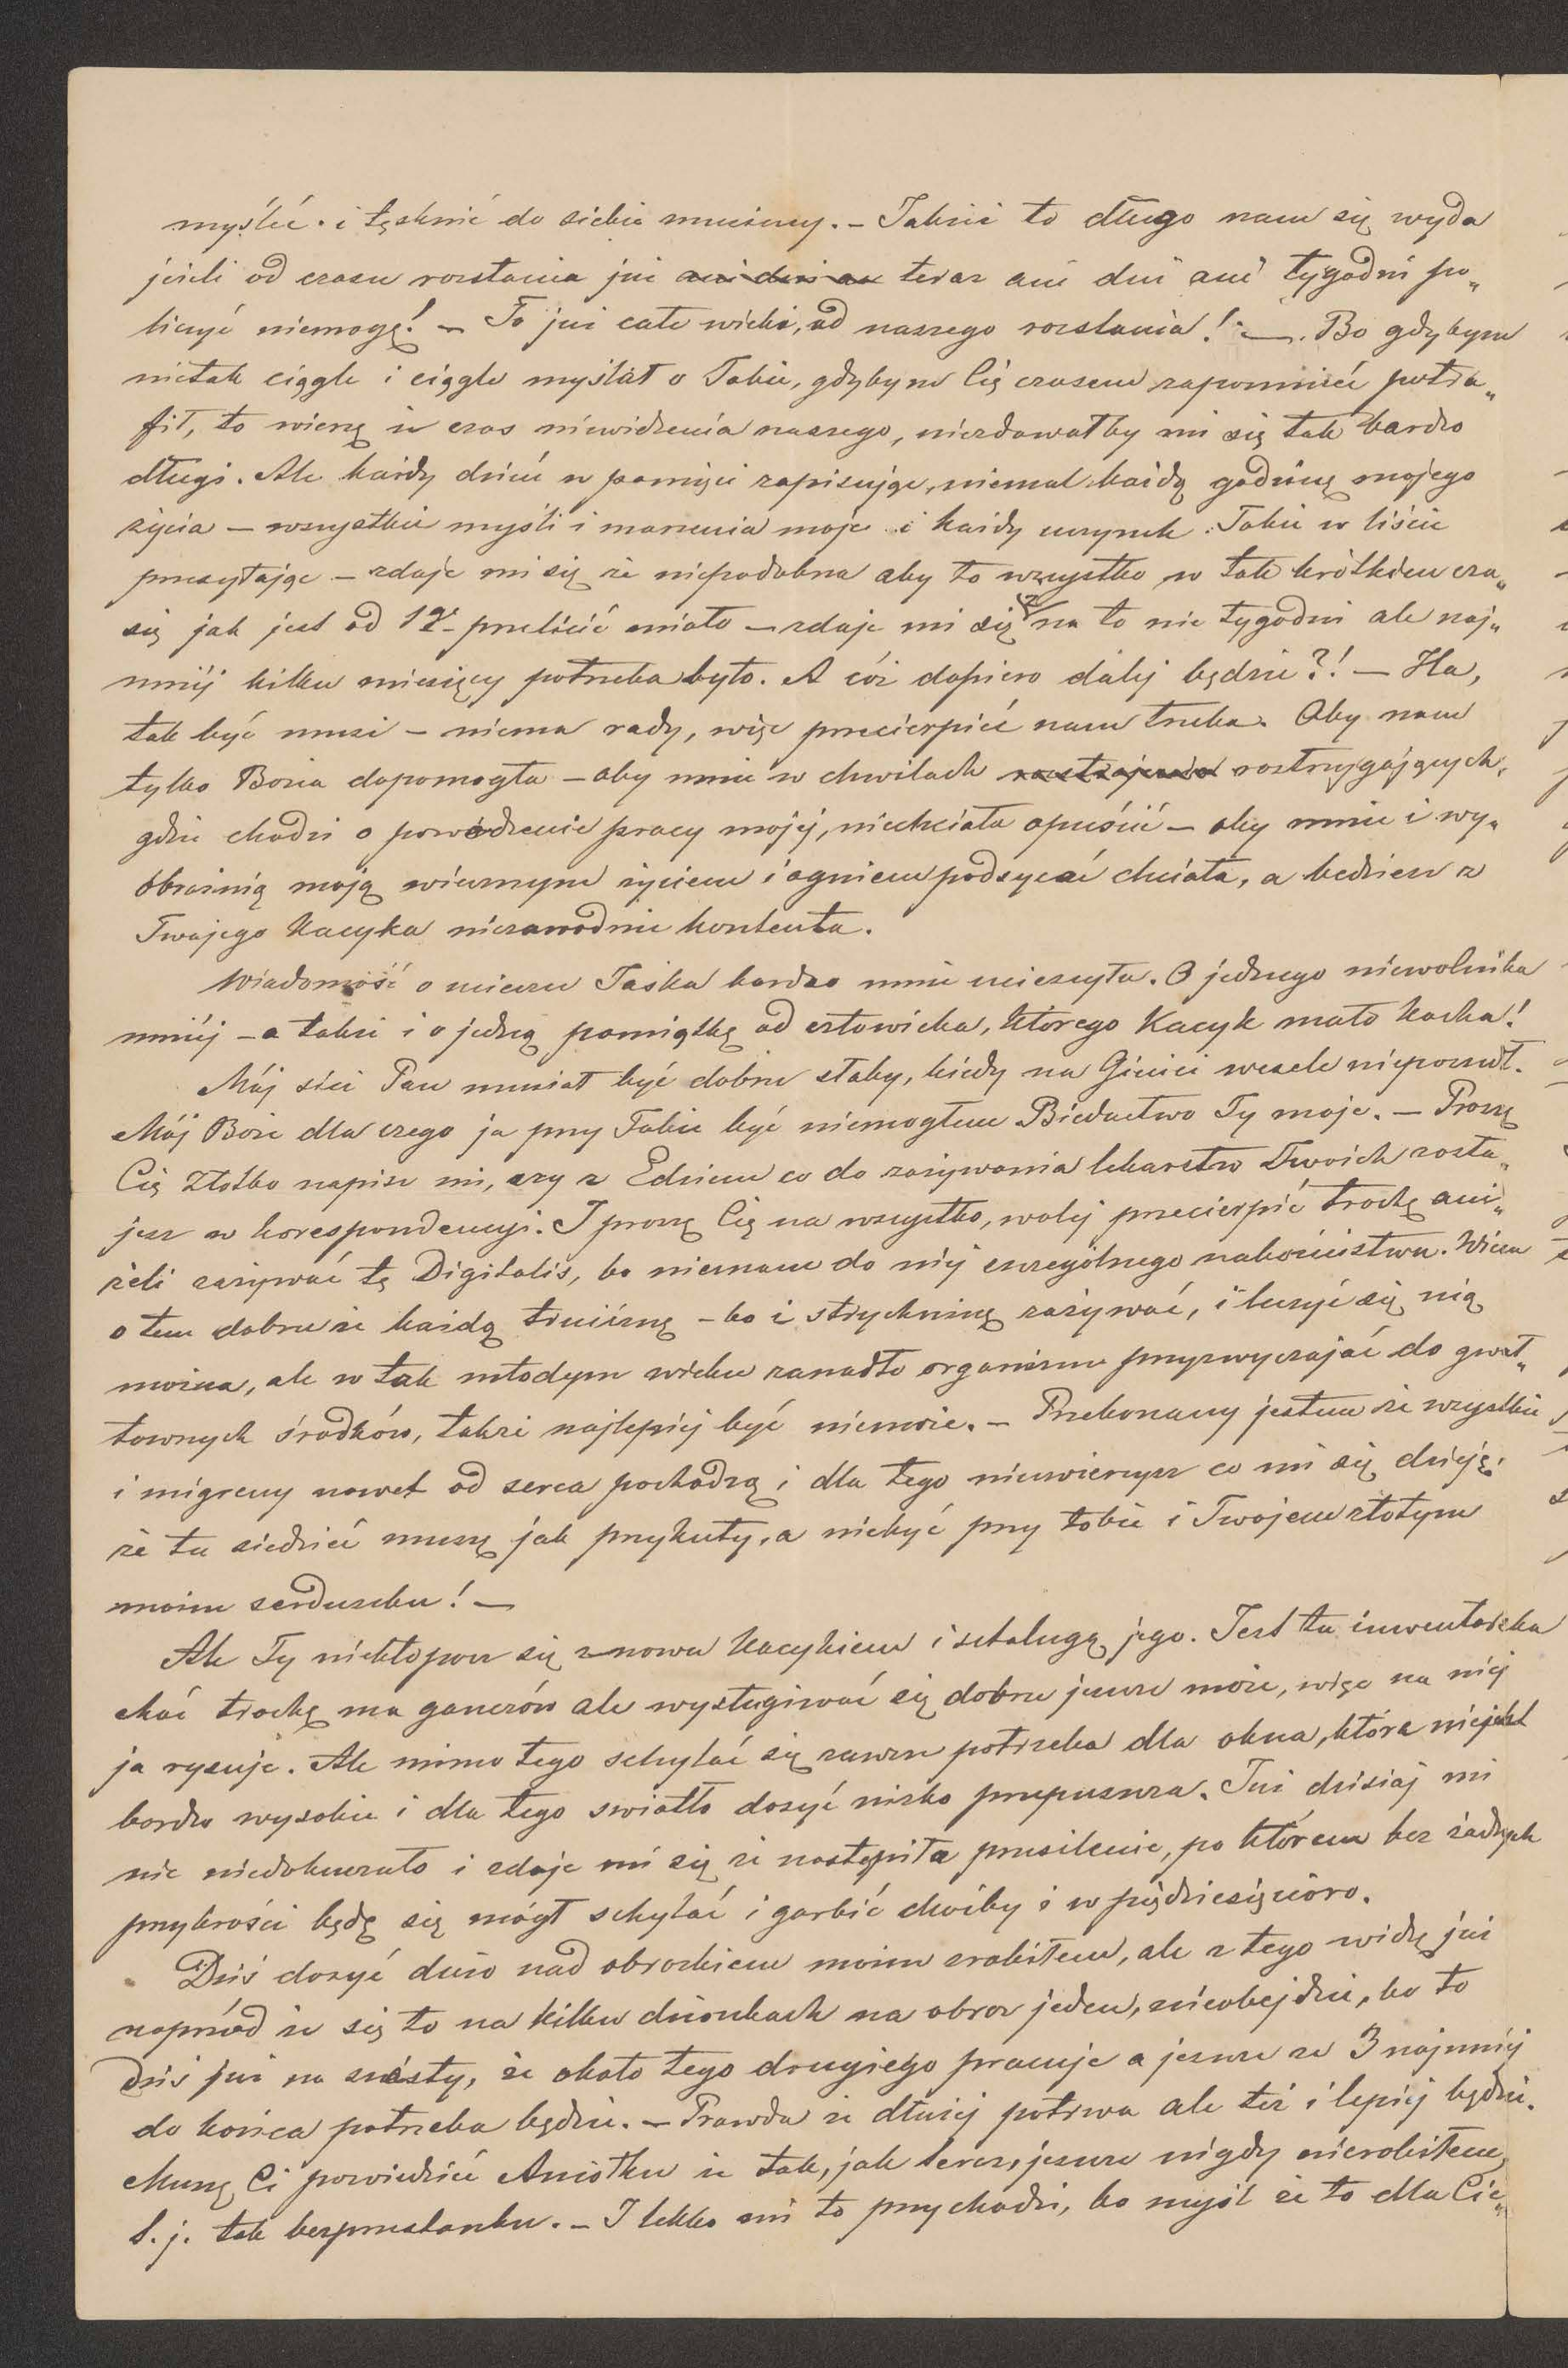 myśléć i tęsknić do siebie musiemy. – Jakże to długo nam się wyda
jeżeli od czasu rozstania już ani dni an teraz ani dni ani tygodni po„
liczyć niemogę! – To już całe wieki, od naszego rozstania! – Bo gdybym
nietak ciągle i ciągle myślał o Tobie, gdybym Cię czasem zapomnieć potra„
fił, to wierzę że czas niewidzenia naszego, niezdawałby mi się tak bardzo
długi. Ale każdy dzień w pamięci zapisując, niemal każdą godzinę mojego
życia – wszystkie myśli i marzenia moje i każdy uczynek Tobie w liście
przesyłając – zdaje mi się że niepodobna aby to wszystko w tak krótkiem cza„
się jak jest od 12– przelécić miało – zdaje mi się że na to nie tygodni ale naj„
mniéj kilku miesięcy potrzeba było. A cóż dopiero daléj będzie?! – Ha,
tak być musi – niema rady, więc przecierpieć nam trzeba. Aby nam
tylko Bozia dopomogła – aby mnie w chwilach rostrzygających,
gdzie chodzi o powodzenie pracy mojéj, niechciała opuścić – aby mnie i wy„
obraźnią moją wiecznym życiem i ogniem podsycać chciała, a bedziesz z
Twojego Kacyka niezawodnie kontenta.
Wiadomość o uciecze Jaśka bardzo mnie ucieszyła. O jednego niewolnika
mniéj – a także i o jedną pamiątkę od człowieka, którego Kacyk mało kocha!
Mój zięć Pan musiał być dobrze słaby, kiedy na Gienci wesele nieposzedł.
Mój Boże dla czego ja przy Tobie być niemogłem Biedactwo Ty moje. – Proszę
Cię Złotko napisz mi, czy z Edziem co do zażywania lekarstw Twoich zosta„
jesz w korespondencyi. I proszę Cię na wszystko, woléj przecierpić trochę ani„
żeli zażywać tę Digitalis, bo niemam do niéj szczególnego nabożeństwa. Wiem
o tem dobrze że każdą truciznę – bo i strychninę zażywać, i leczyć się nią
można, ale w tak młodym wieku zanadto organizm przyzwyczajać do gwał„
townych środków, także najlepiéj być niemoże. – Przekonany jestem że wszystkie
i migreny nawet od serca pochodzą i dla tego nieuwierzysz co mi się dzieje,
że tu siedzieć muszę jak przykuty, a niebyć przy tobie i Twojem złotym
moim serduszku! –
Ale Ty niekłopocz się znowu Kacykiem i sztalugą jego. Jest tu inwentarska
choć trochę ma ganczów ale wysługiwać się dobrze jeszcze może, więc na niéj
ja rysuje. Ale mimo tego schylać się zawsze potrzeba dla okna, które niejest
bardzo wysokie i dla tego swiatło dosyć nizko przepuszcza. Już dzisiaj mi
nic niedokuczało i zdaje mi się że nastąpiła przesilenie, po którem bez żadnych
przykrości będę się mógł schylać i garbić choćby i w pięćdziesięcioro.
Dziś dosyć dużo nad obrazkiem moim zrobiłem, ale z tego widzę już
naprzód że się to na kilku dzionkach na obraz jeden, nieobejdzie, bo to
dziś już na szósty, że około tego drugiego pracuje a jeszcze ze 3 najmniéj
do końca potrzeba będzie. – Prawda że dłużéj potrwa ale też i lepiéj będzie.
Muszę Ci powiedzieć Aniołku że tak, jak teraz, jeszcze nigdy nierobiłem,
t. j. tak bezprzestanku. – I lekko mi to przychodzi, bo myśl że to dla Cie„